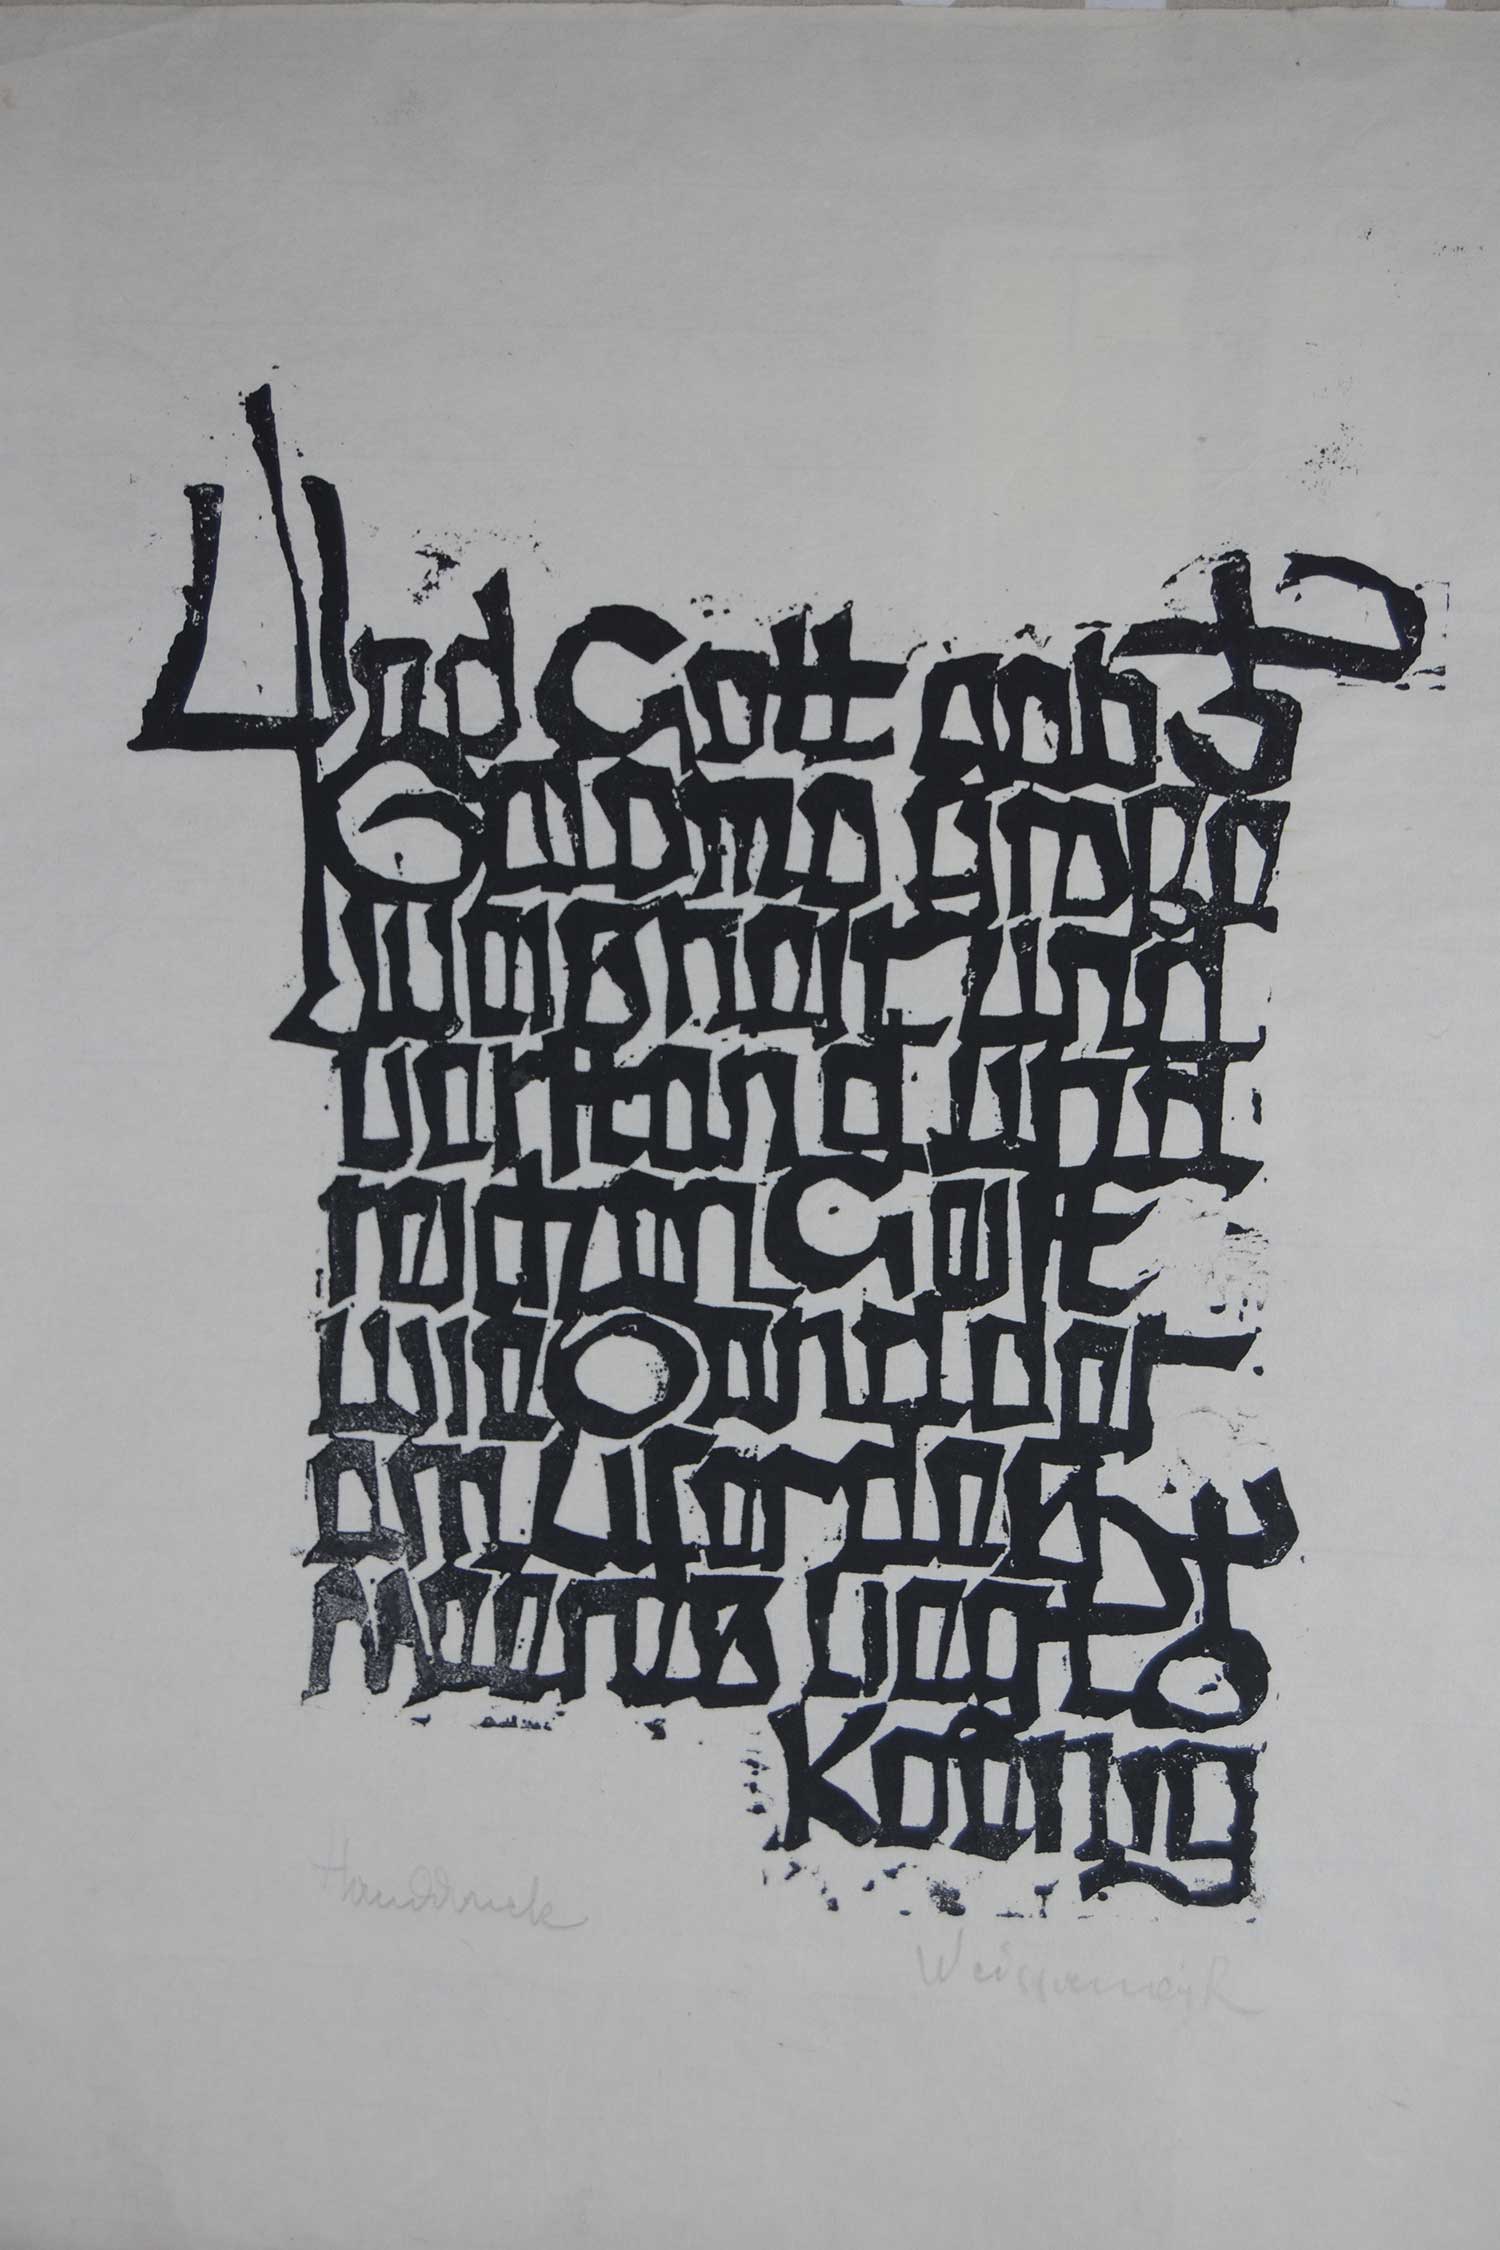 Und Gott gab
Salomo große
Weisheit und
verstand und
reichen Geist
wie Sand der
am Ufer des
Meeres liegt
Koenig
Handdruck